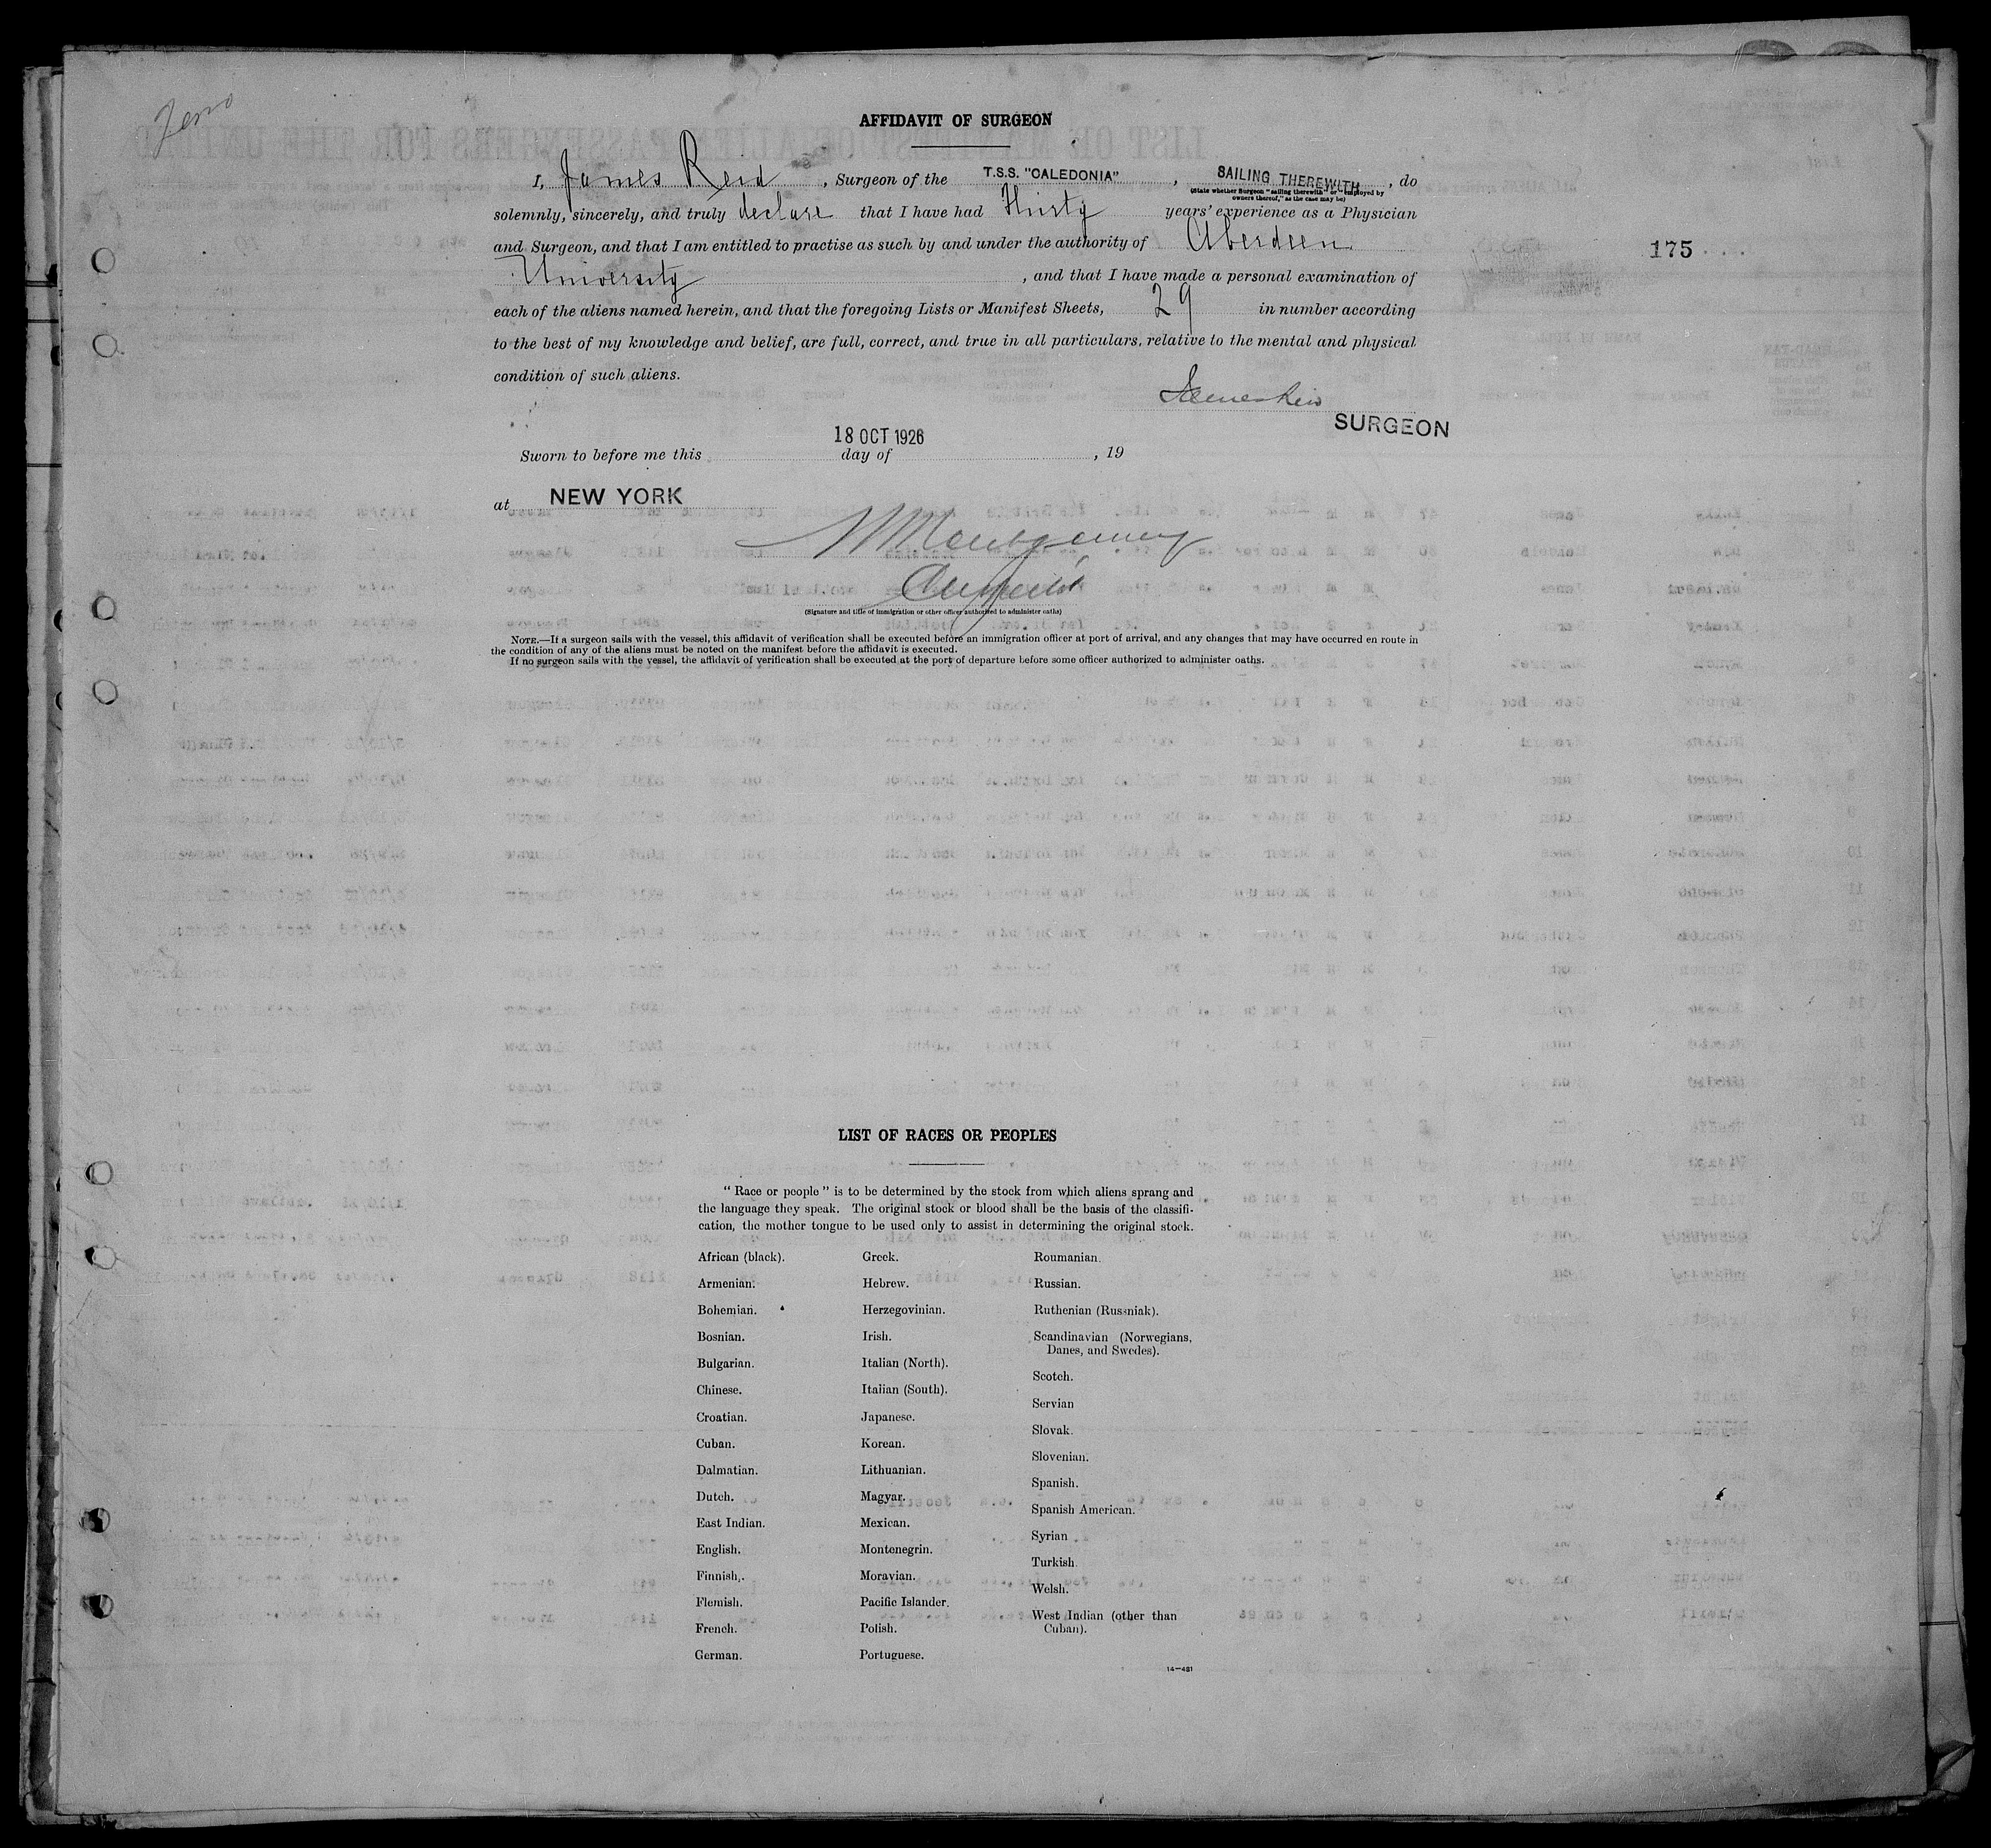 AFFIDAVIT OF SURGEON
I, James Reid, Surgeon of the T.S.S. "CALEDONIA", SAILING THEREWITH, do
(State whether Surgeon "sailing therewith" or "employed by
owners thereof," as the case may be)
solemnly, sincerely, and truly declare that I have had Thirty years' experience as a Physician
and Surgeon, and that I am entitled to practise as such by and under the authority of Aberdeen
175
University, and that I have made a personal examination of
each of the aliens named herein, and that the foregoing Lists or Manifest Sheets, 29 in number according
to the best of my knowledge and belief, are full, correct, and true in all particulars, relative to the mental and physical
condition of such aliens.
James Reid
SURGEON
18 OCT 1926
Sworn to before me this day of , 19
at NEW YORK
Montgomery
(Signature and title of immigration or other officer authorized to administer oaths)
NOTE.—If a surgeon sails with the vessel, this affidavit of verification shall be executed before an immigration officer at port of arrival, and any changes that may have occurred en route in
the condition of any of the aliens must be noted on the manifest before the affidavit is executed.
If no surgeon sails with the vessel, the affidavit of verification shall be executed at the port of departure before some officer authorized to administer oaths.
LIST OF RACES OR PEOPLES
"Race or people" is to be determined by the stock from which aliens sprang and
the language they speak. The original stock or blood shall be the basis of the classifi-
cation, the mother tongue to be used only to assist in determining the original stock.
African (black).
Armenian.
Bohemian.
Bosnian.
Bulgarian.
Chinese.
Croatian.
Cuban.
Dalmatian.
Dutch.
East Indian.
English.
Finnish.
Flemish.
French.
German.
Greek.
Hebrew.
Herzegovinian.
Irish.
Italian (North).
Italian (South).
Japanese.
Korean.
Lithuanian.
Magyar.
Mexican.
Montenegrin.
Moravian.
Pacific Islander.
Polish.
Portuguese.
Roumanian.
Russian.
Ruthenian (Russniak).
Scandinavian (Norwegians,
Danes, and Swedes).
Scotch.
Servian
Slovak.
Slovenian.
Spanish.
Spanish American.
Syrian
Turkish.
Welsh.
West Indian (other than
Cuban).
14—481